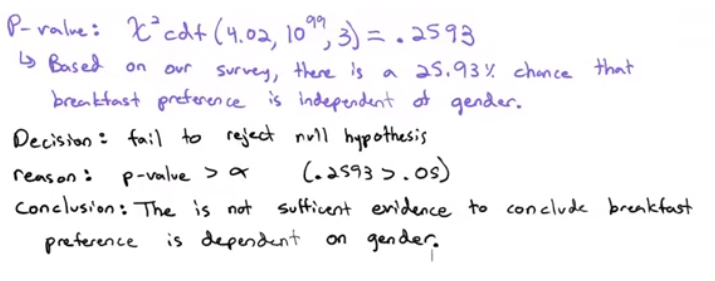 P-value: χ²cdf (4.02, 10⁹⁹, 3) = .2593
↳ Based on our survey, there is a 25.93% chance that
breakfast preference is independent of gender.
Decision: fail to reject null hypothesis
reason: p-value > α (.2593 > .05)
Conclusion: The is not sufficent evidence to conclude breakfast
preference is dependent on gender.